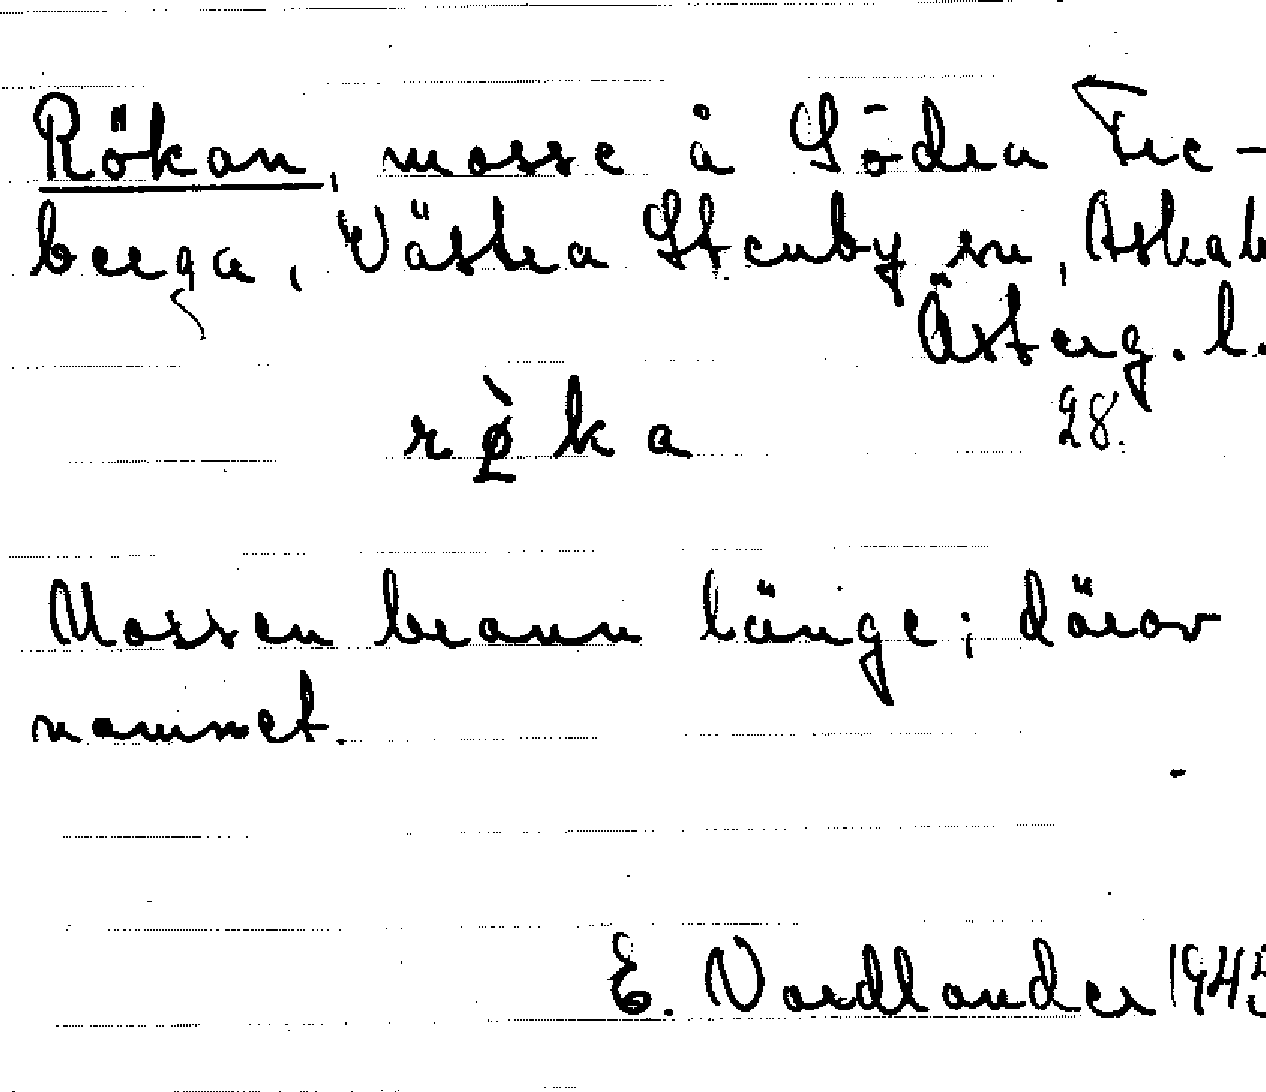 Rökan, mosse å Södra Fre-
berga, Västra Stenby sn, Askab
Österg. l.
28.
rø̀ka
Mossen brann länge; därav
namnet.
E. Nordlander 1945